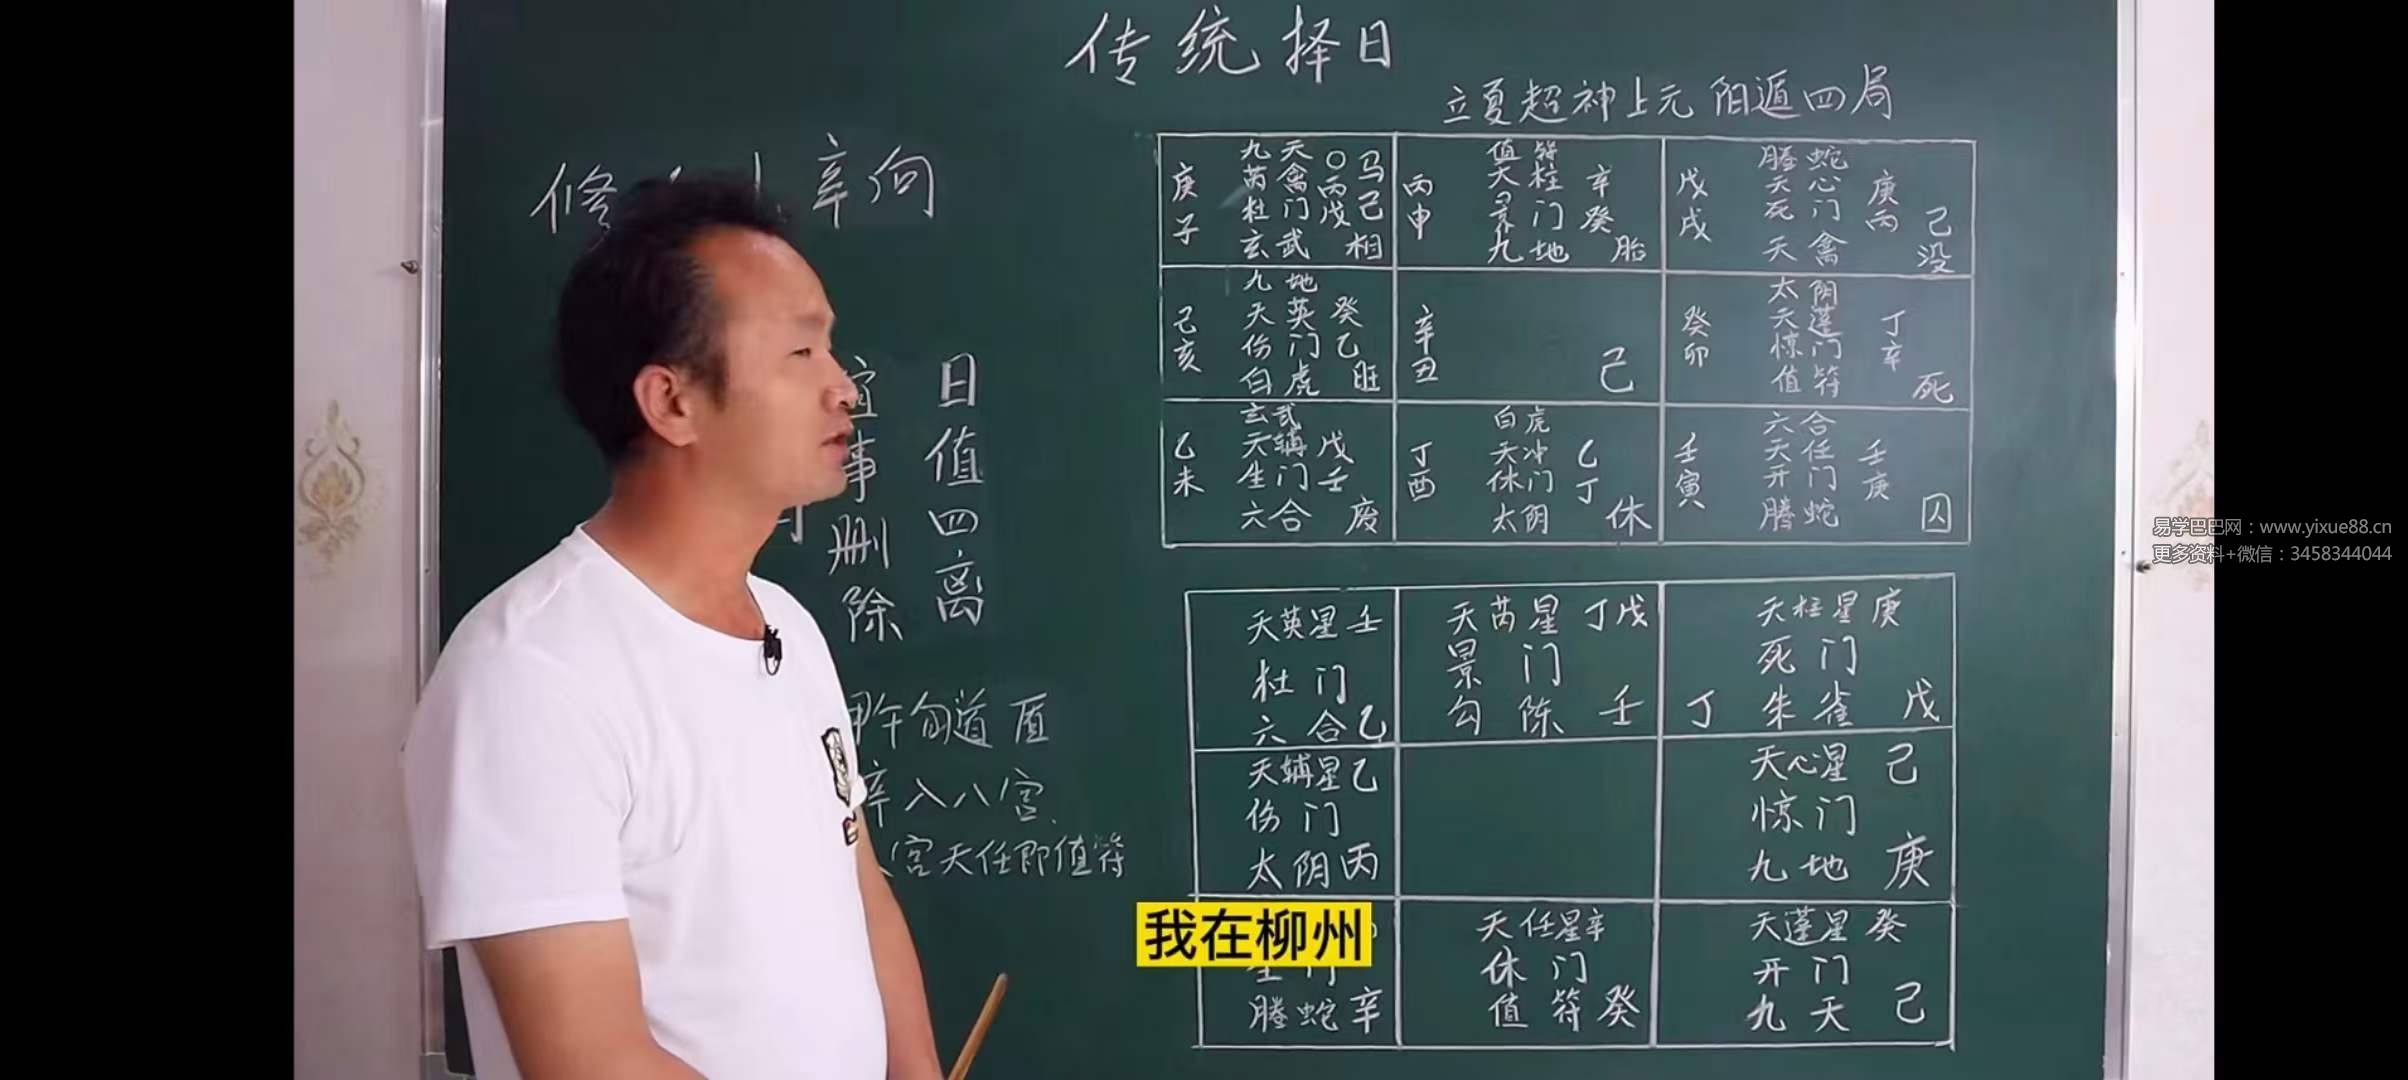 传统择日
立夏超神上元 阳遁四局
修 辛向
日值四离
宜事删除
甲午旬遁盾
辛入八宫
宫天任即值符
庚子
九天 〇 马
芮禽 丙
杜门 戊 己
玄武 相
丙申
值符
天柱 辛
景门 癸
九地 胎
戊戌
腾蛇
天心 庚
死门 丙 己
天禽 没
己亥
九地
天英 癸
伤门 乙
白虎 旺
辛丑
己
癸卯
太阴
天蓬 丁
惊门 辛
值符 死
乙未
玄武
天辅 戊
生门 壬
六合 废
丁酉
白虎
天冲 乙
休门 丁
太阴 休
壬寅
六合
天任 壬
开门 庚
腾蛇 囚
天英星 壬
杜门
六合 乙
天芮星 丁戊
景门
勾陈 壬
天柱星 庚
死门
丁 朱雀 戊
天辅星 乙
伤门
太阴 丙
天心星 己
惊门
九地 庚
腾蛇 辛
天任星 辛
休门
值符 癸
天蓬星 癸
开门
九天 己
我在柳州
易学巴巴网：www.yixue88.cn
更多资料+微信：3458344044